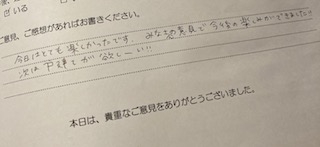 ている
ご意見、ご感想があればお書きください。
今日はとても楽しかったです みなさん良で今後の楽しみができました!!
次は戸建てが欲しーい!!
本日は、貴重なご意見をありがとうございました。